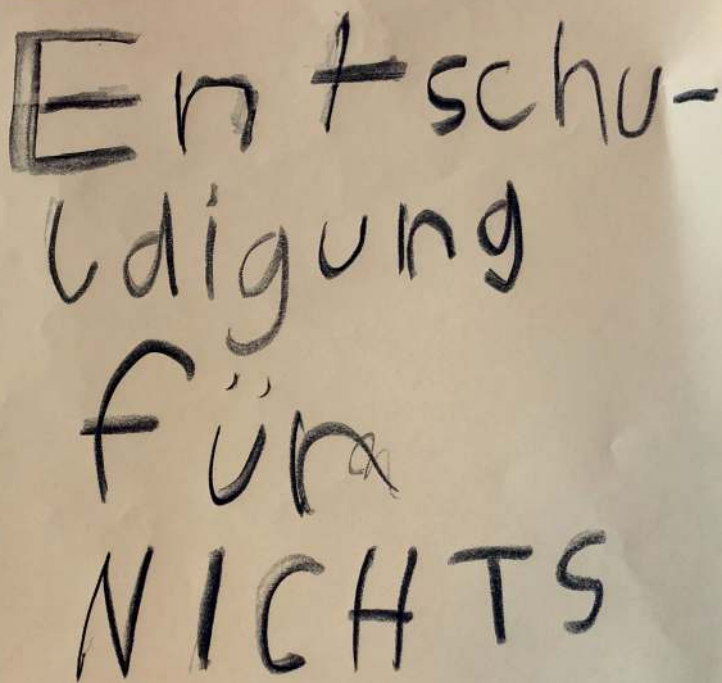 Entschu-
ldigung
für
NICHTS